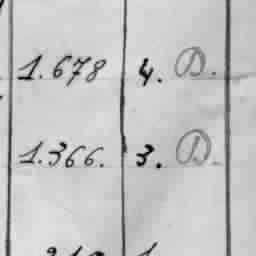 1.678 4. D.
1.366. 3. D.